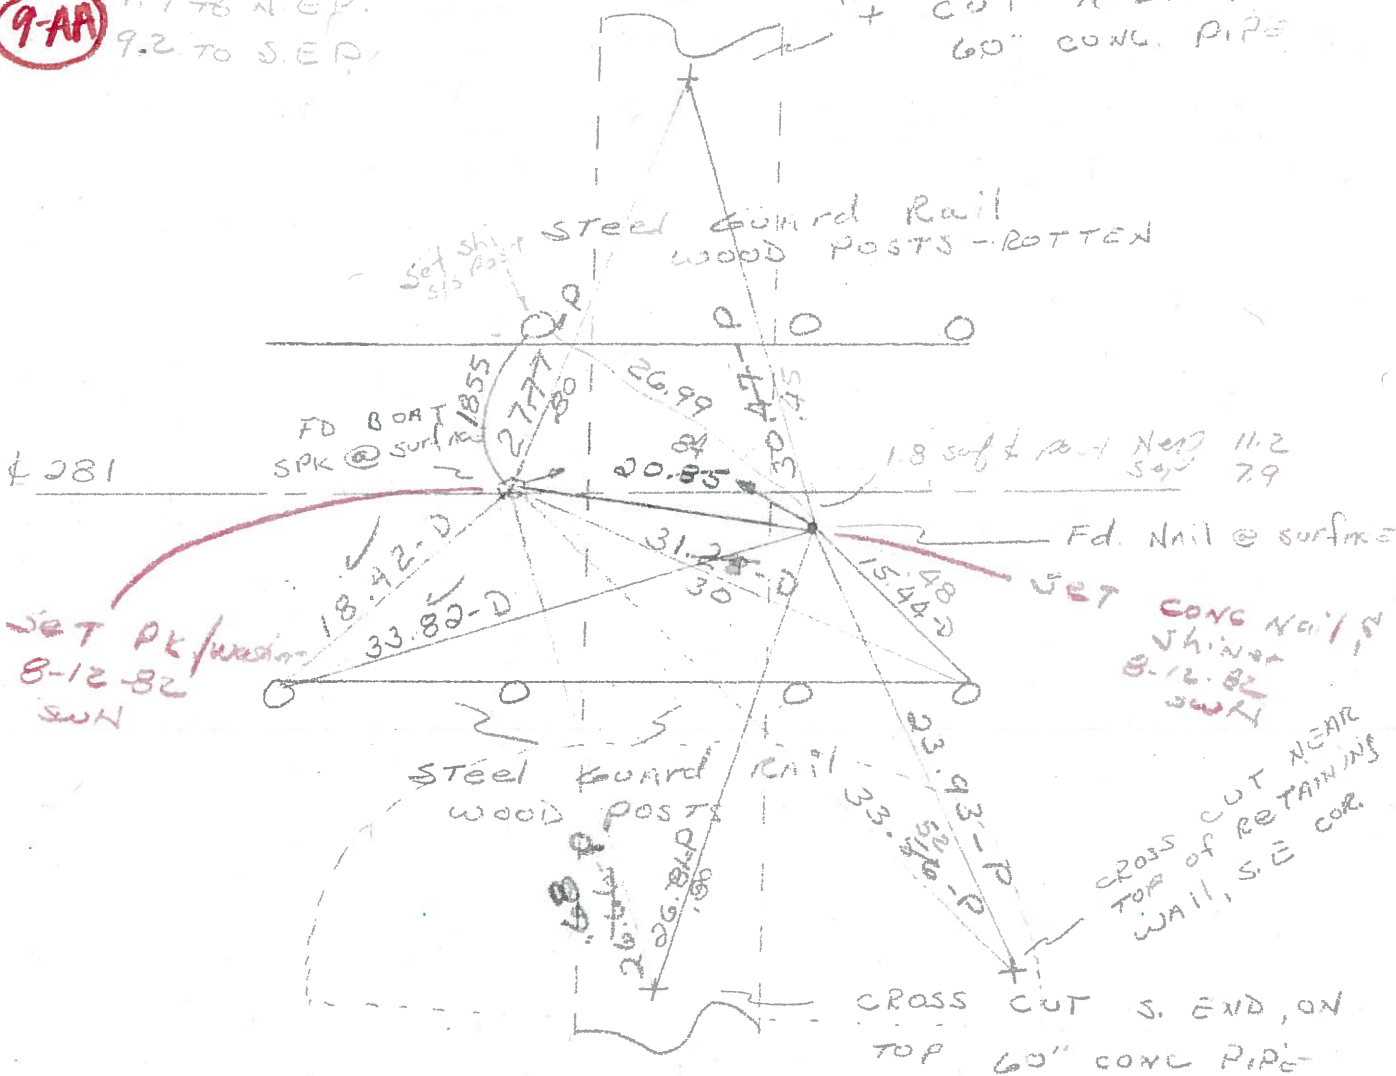 9-AA
TO N. E.P.
9.2 TO S. E.P.
+ CUT
60" CONC. PIPE
Steel Guard Rail
WOOD POSTS - ROTTEN
Set Shi
P
P
18.55
27.77
.80
26.99
30.47
.45
FD BOAT
SPK @ surface
84
20.85
11.2
7.9
₵ 281
18.42-D
33.82-D
31.2 -D
30
15.44-D
.48
Fd. Nail @ surface
Set PK/Washer
8-12-82
SWH
SET CONC Nail &
Shiner
8-12-82
SWH
Steel Guard Rail
WOOD POSTS
.68 P
26.81-P
.86
33. -P
52
23.93-P
CROSS CUT NEAR
TOP of RETAINING
WALL, S.E COR.
CROSS CUT S. END, ON
TOP 60" CONC PIPE